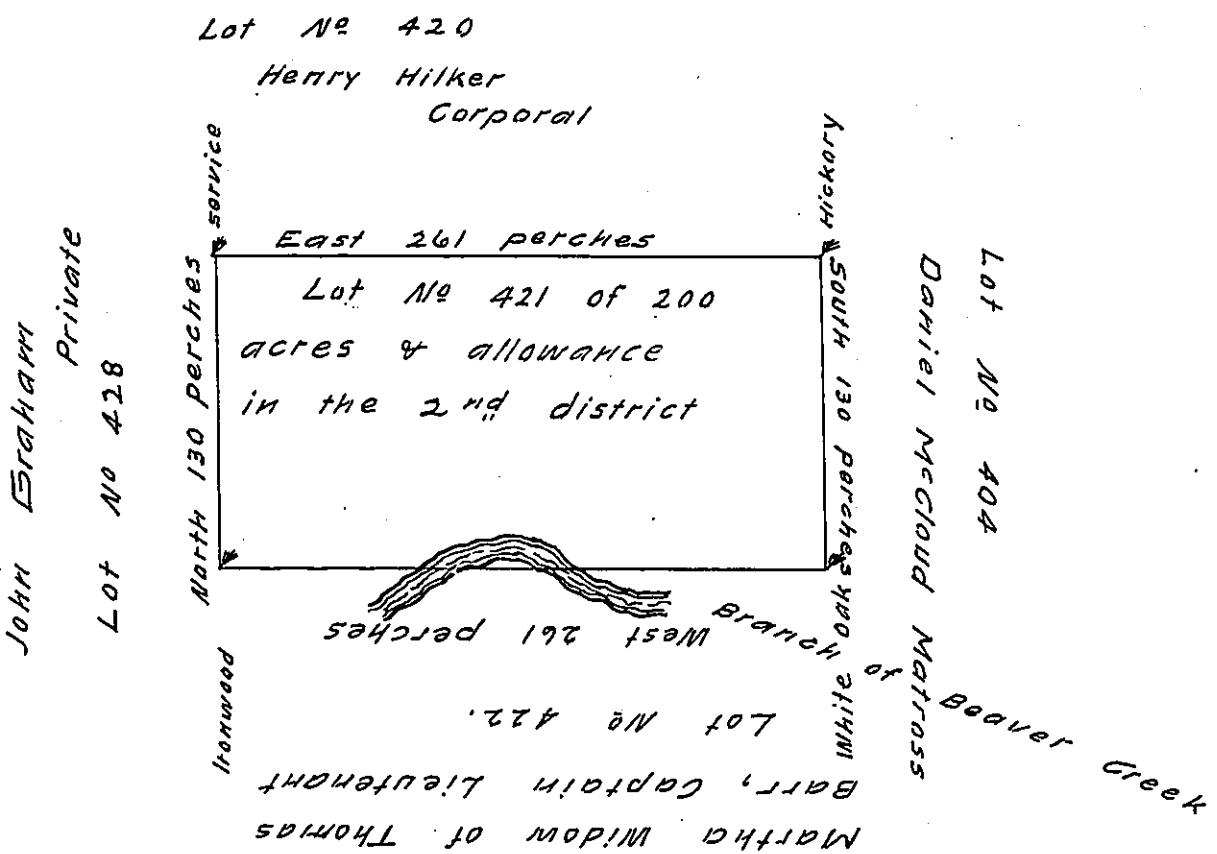 Lot Nº 420
Henry Hilker
Corporal
service
Hickory
East 261 perches
Lot Nº 421 of 200
acres & allowance
in the 2nd district
North 130 perches
South 130 perches
John Graham
Private
Lot Nº 428
Lot Nº 404
Daniel McCloud Matross
West 261 perches
Branch of Beaver Creek
Ironwood
White Oak
Lot Nº 422.
Martha Widow of Thomas
Barr, Captain Lieutenant